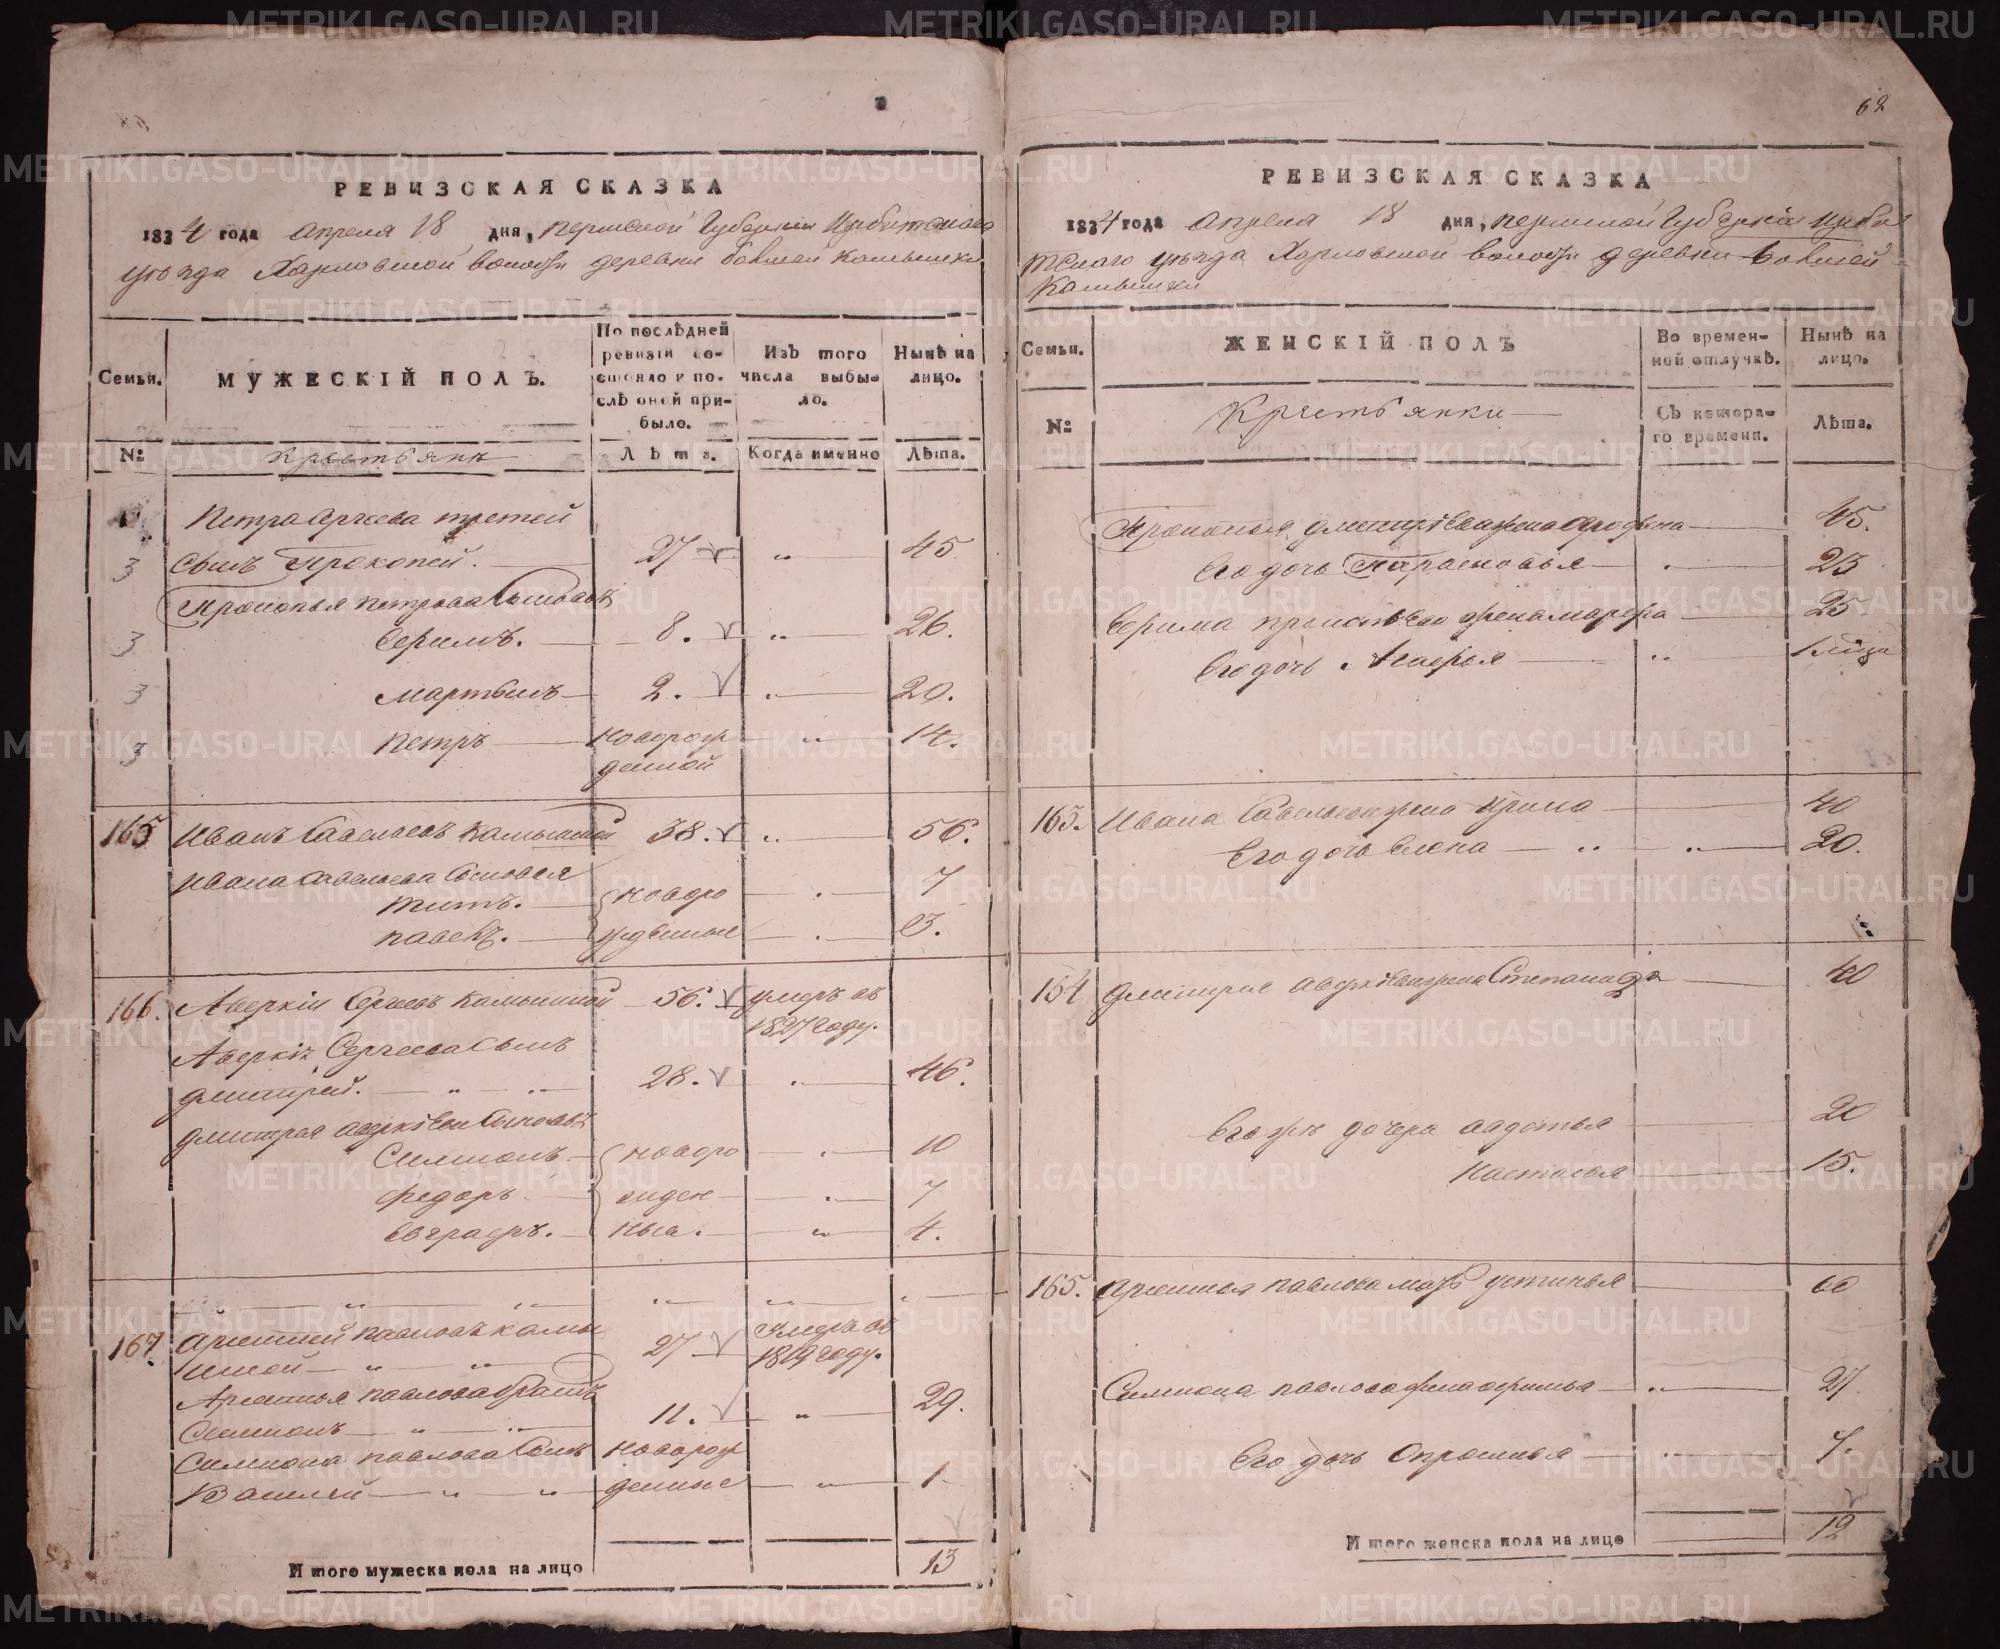 62
РЕВИЗСКАЯ СКАЗКА
1834 года апреля 18 дня, пермской Губернии Ирбитского
уезда Харловской волости деревни Бовшей Камышки
Семьи.
МУЖЕСКІЙ ПОЛЪ.
По послѣдней ревизіи состояло и послѣ оной прибыло.
Изъ того числа выбыло.
Нынѣ на лицо.
№
Крестьяни
Лѣта.
Когда именно
Лѣта.
Петра Сргеева третей
3 сынъ Прокопей. 27 " 45
Прокопья петрова Сыновья
3 Ефимъ. 8. " 26.
3 мартынъ 2. " 20.
3 петръ новорож " 14.
денной
165 Иванъ Савельевъ Камышной 38. " 56.
Ивана Савельева Сыновья
титъ. новоро 7
павелъ. жденные 3.
166. Аверкіи Сергеевъ Камышной 56. умеръ въ
1827 году.
Аверкія Сергеева Сынъ
дмитрей. " " 28. 46.
дмитрея аверкіева Сыновья
Симионъ новоро 10
федоръ жден 7
Евграфъ. ныа. " 4.
167. Арсентей павловъ камы 27 Умеръ въ
шной " " 1819 году.
Арсентья павлова братъ
Симионъ " " 11. " 29.
Симиона павлова Сынъ новорож
Василей " " денные " 1
И того мужеска пола на лицо 13
РЕВИЗСКАЯ СКАЗКА
1834 года апреля 18 дня, пермской Губерніи Ирби
тскаго уезда Харловской волости деревни Бовшей
Камышки
Семьи.
ЖЕНСКІЙ ПОЛЪ
Во временной отлучкѣ.
Нынѣ на лицо.
№
Крестьянки
Съ котораго времени.
Лѣта.
Прокопья жена 45.
Его дочь Парасковья 23
Ефима прокопьева жена марфа 25.
Его дочь Агафья " 1 лица
163. Ивана Савельева жена Ирина 40
Его дочь Елена " " 20.
164 дмитрея аверкіева жена Степанида 40
Его же дочери авдотья 20
Настасья 15.
165. Арсентья павлова мать устинья 60
Симиона павлова жена афимья " 27
Его дочь Опросинья " 7.
И того женска пола на лицо 12
METRIKI.GASO-URAL.RU